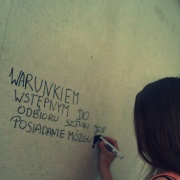 WARUNKIEM
WSTĘPNYM DO
ODBIORU SZTUKI JEST
POSIADANIE MÓZGU